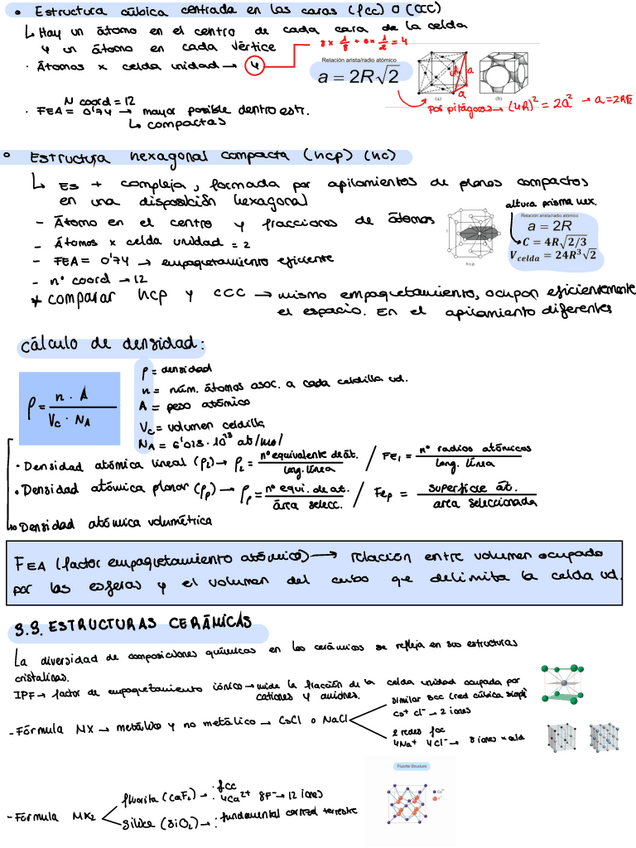 • Estructura cúbica centrada en las caras (fcc) o (CCC)
↳ Hay un átomo en el centro de cada cara de la celda
y un átomo en cada vértice
8 x 1/8 + 6 x 1/2 = 4
· Átomos x celda unidad → 4
Relación arista/radio atómico
a = 2R√2
(a) (b)
a
N coord = 12
· FEA = 0'74 → mayor posible dentro estr.
↳ compactas
Por pitágoras → (4R)² = 2a² → a = 2R√2
• Estructura hexagonal compacta (hcp) (hc)
↳ Es + compleja, formada por apilamientos de planos compactos
en una disposición hexagonal
altura prisma hex
– Átomo en el centro y fracciones de átomos
Relación arista/radio atómico
a = 2R
– Átomos x celda unidad = 2
C = 4R√2/3
– FEA = 0'74 → empaquetamiento eficiente
V celda = 24R³√2
h.c.p.
– nº coord → 12
* comparar hcp y CCC → mismo empaquetamiento, ocupan eficientemente
el espacio. En el apilamiento diferentes
Cálculo de densidad:
ρ = n · A / Vc · NA
ρ = densidad
n = núm. átomos asoc. a cada celdilla ud.
A = peso atómico
Vc = volumen celdilla
NA = 6'023 · 10²³ at/mol
· Densidad atómica lineal (ρL) → ρL = nº equivalente de át. / long. línea / FEl = nº radios atómicos / long. línea
· Densidad atómica planar (ρp) → ρp = nº equi. de at. / área selecc. / FEp = superficie át. / area seleccionada
↳ Densidad atómica volumétrica
FEA (factor empaquetamiento atómico) → relación entre volumen ocupado
por las esferas y el volumen del cubo que delimita la celda ud.
3.3. ESTRUCTURAS CERÁMICAS
La diversidad de composiciones químicas en los cerámicos se refleja en sus estructuras
cristalinas.
IPF → factor de empaquetamiento iónico → mide la fracción de la celda unidad ocupada por
cationes y aniones.
similar bcc (red cúbica simple)
Cs⁺ Cl⁻ → 2 iones
– Fórmula MX → metálico y no metálico → CsCl o NaCl
2 redes fcc
4Na⁺ 4Cl⁻ → 8 iones
Fluorite Structure
– Fórmula MX2
fluorita (CaF₂) → : fcc
4Ca²⁺ 8F⁻ → 12 iones
Sílice (SiO₂) → : fundamental corteza terrestre